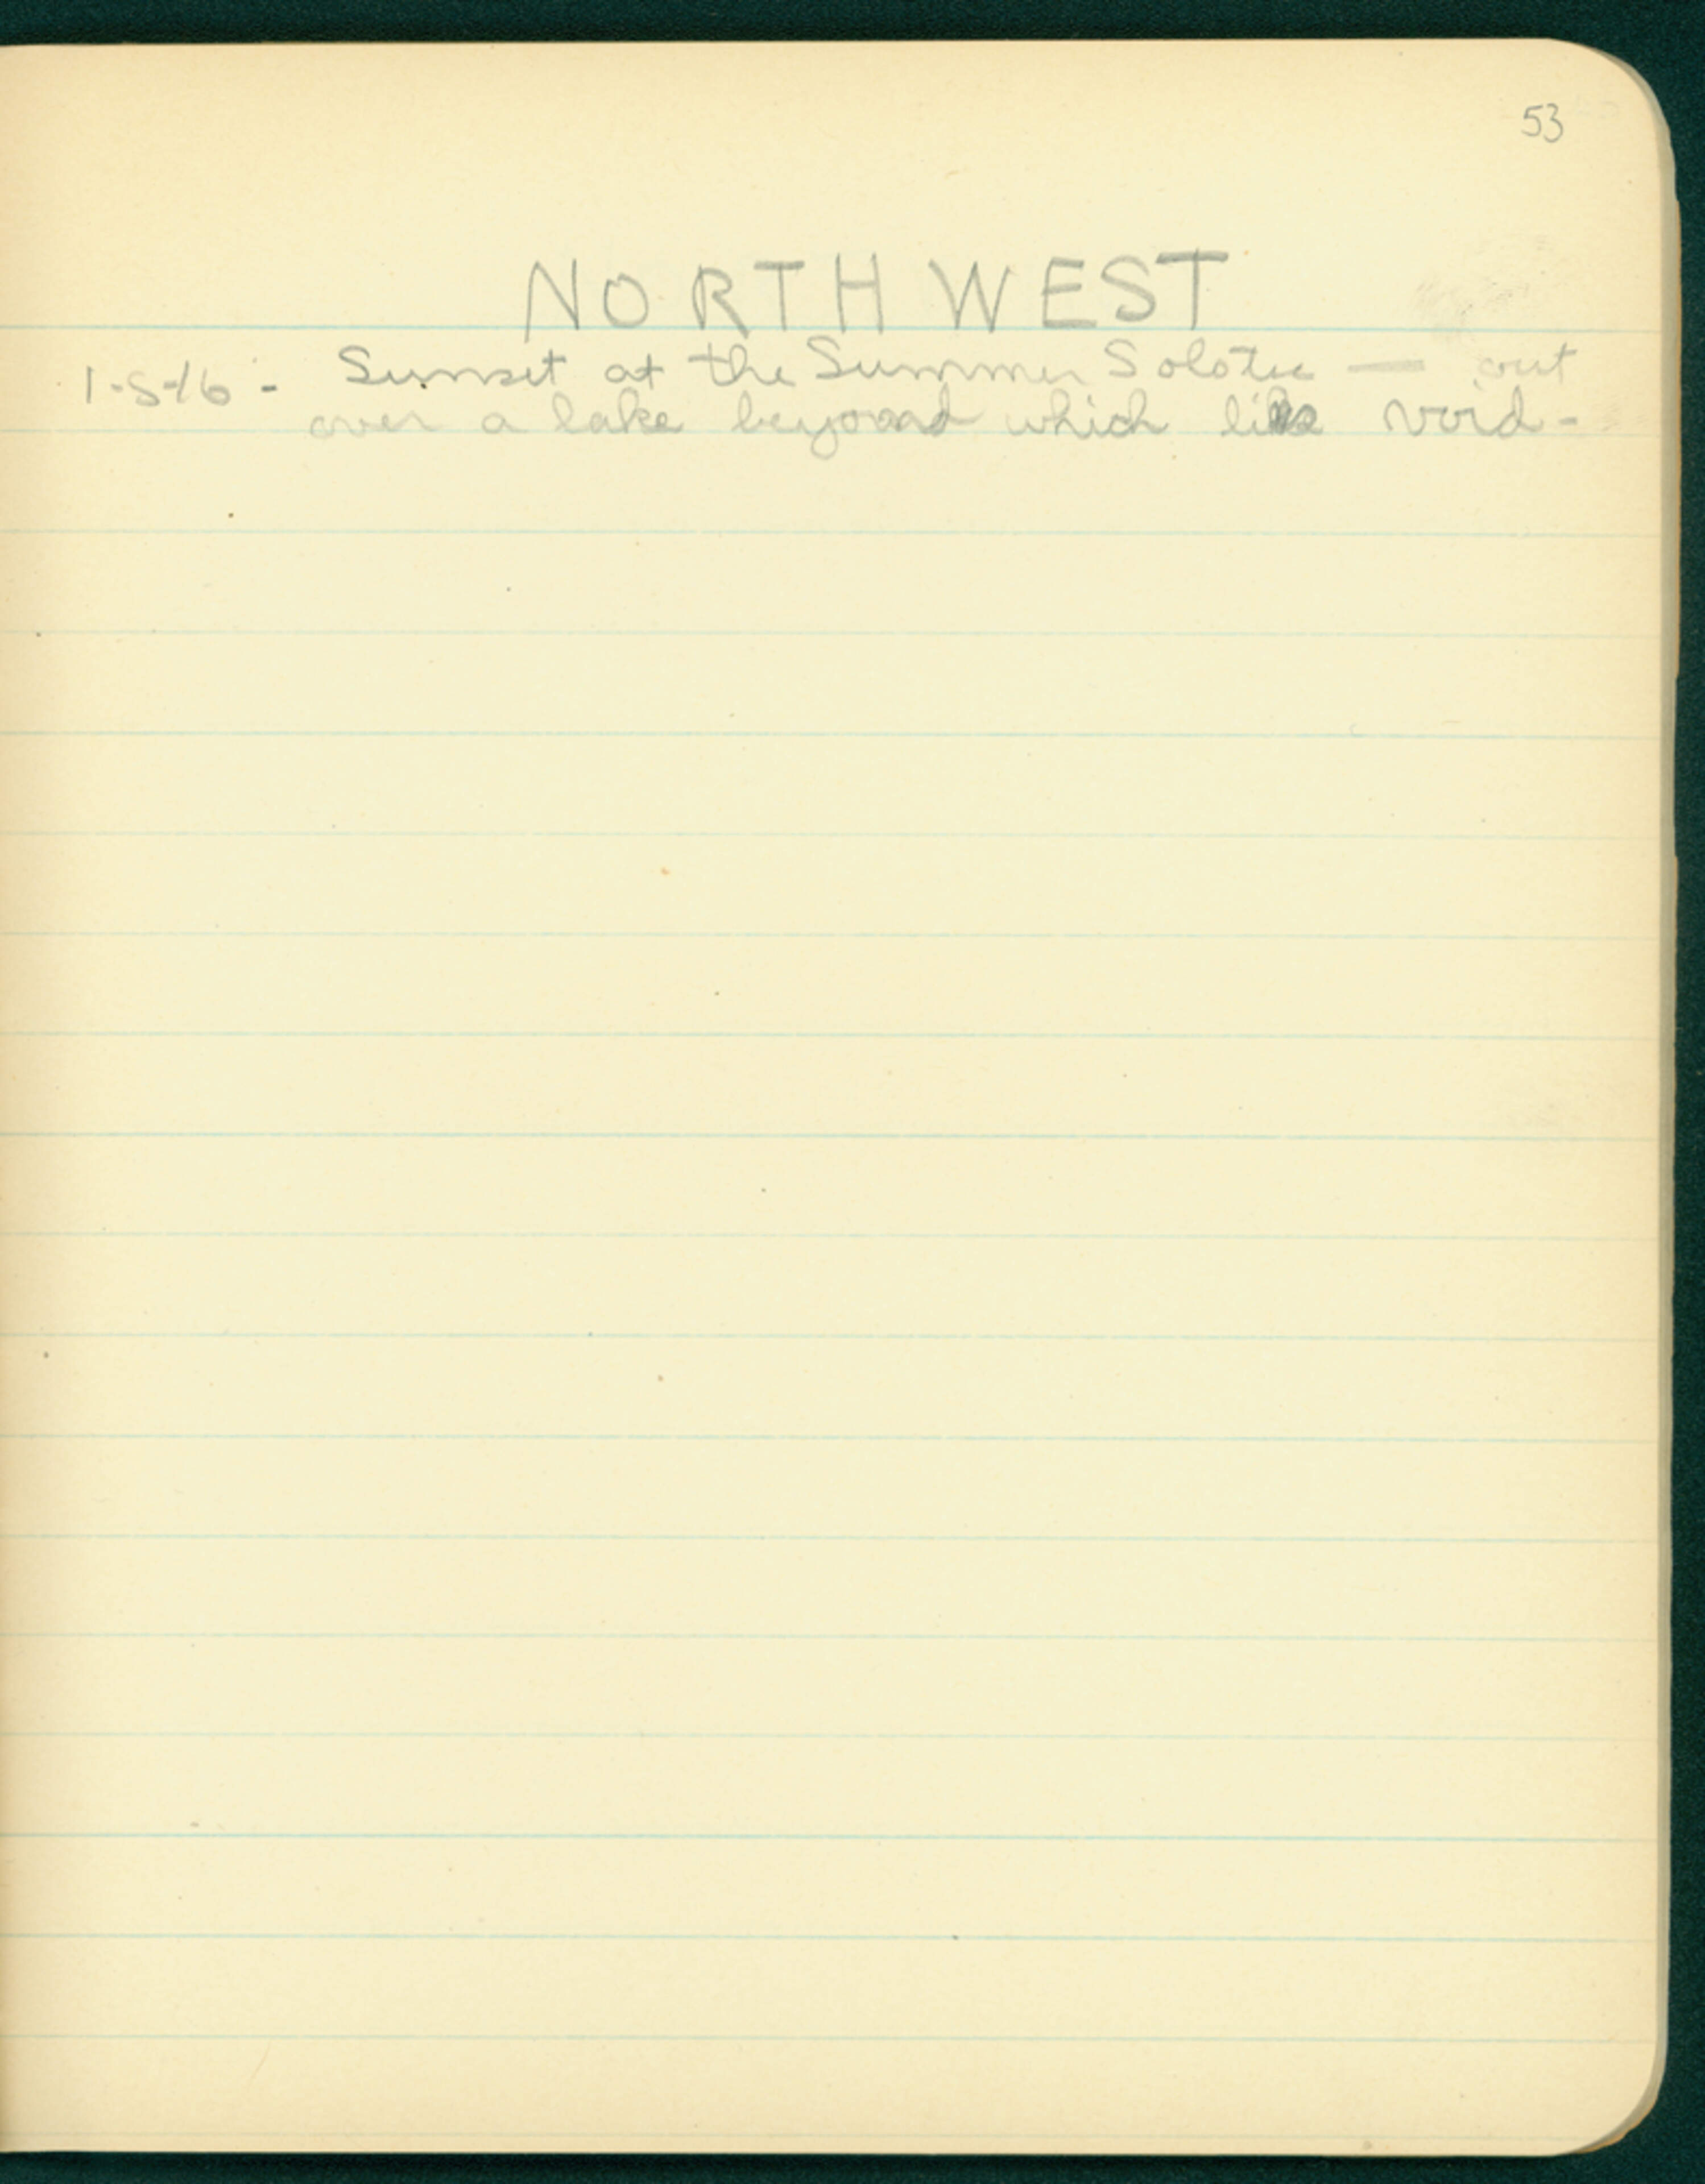 53
NORTHWEST
1-S-16 - Sunset at the Summer Solstice — out
over a lake beyond which lies void -